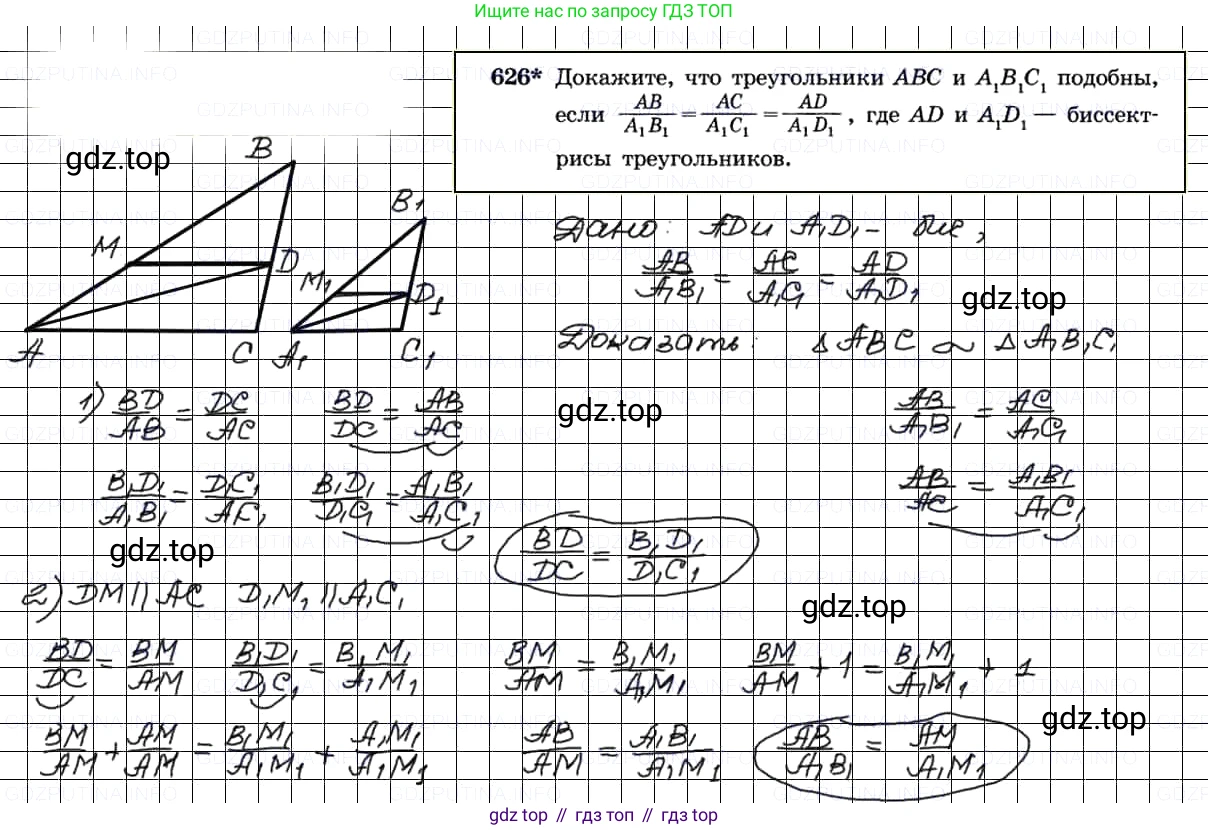 Ищите нас по запросу ГДЗ ТОП
626* Докажите, что треугольники ABC и A₁B₁C₁ подобны,
если AB/A₁B₁ = AC/A₁C₁ = AD/A₁D₁, где AD и A₁D₁ — биссект-
рисы треугольников.
gdz.top
B
B₁
M
D
M₁
D₁
A
C
A₁
C₁
Дано: AD и A₁D₁ - бис,
AB/A₁B₁ = AC/A₁C₁ = AD/A₁D₁
gdz.top
Доказать: △ABC ∼ △A₁B₁C₁
1) BD/AB = DC/AC BD/DC = AB/AC
gdz.top
AB/A₁B₁ = AC/A₁C₁
B₁D₁/A₁B₁ = D₁C₁/A₁C₁ B₁D₁/D₁C₁ = A₁B₁/A₁C₁
AB/AC = A₁B₁/A₁C₁
gdz.top
BD/DC = B₁D₁/D₁C₁
2) DM || AC D₁M₁ || A₁C₁
gdz.top
BD/DC = BM/AM B₁D₁/D₁C₁ = B₁M₁/A₁M₁ BM/AM = B₁M₁/A₁M₁ BM/AM + 1 = B₁M₁/A₁M₁ + 1
gdz.top
BM/AM + AM/AM = B₁M₁/A₁M₁ + A₁M₁/A₁M₁ AB/AM = A₁B₁/A₁M₁ AB/A₁B₁ = AM/A₁M₁
gdz top // гдз топ // gdz.top
GDZPUTINA.INFO